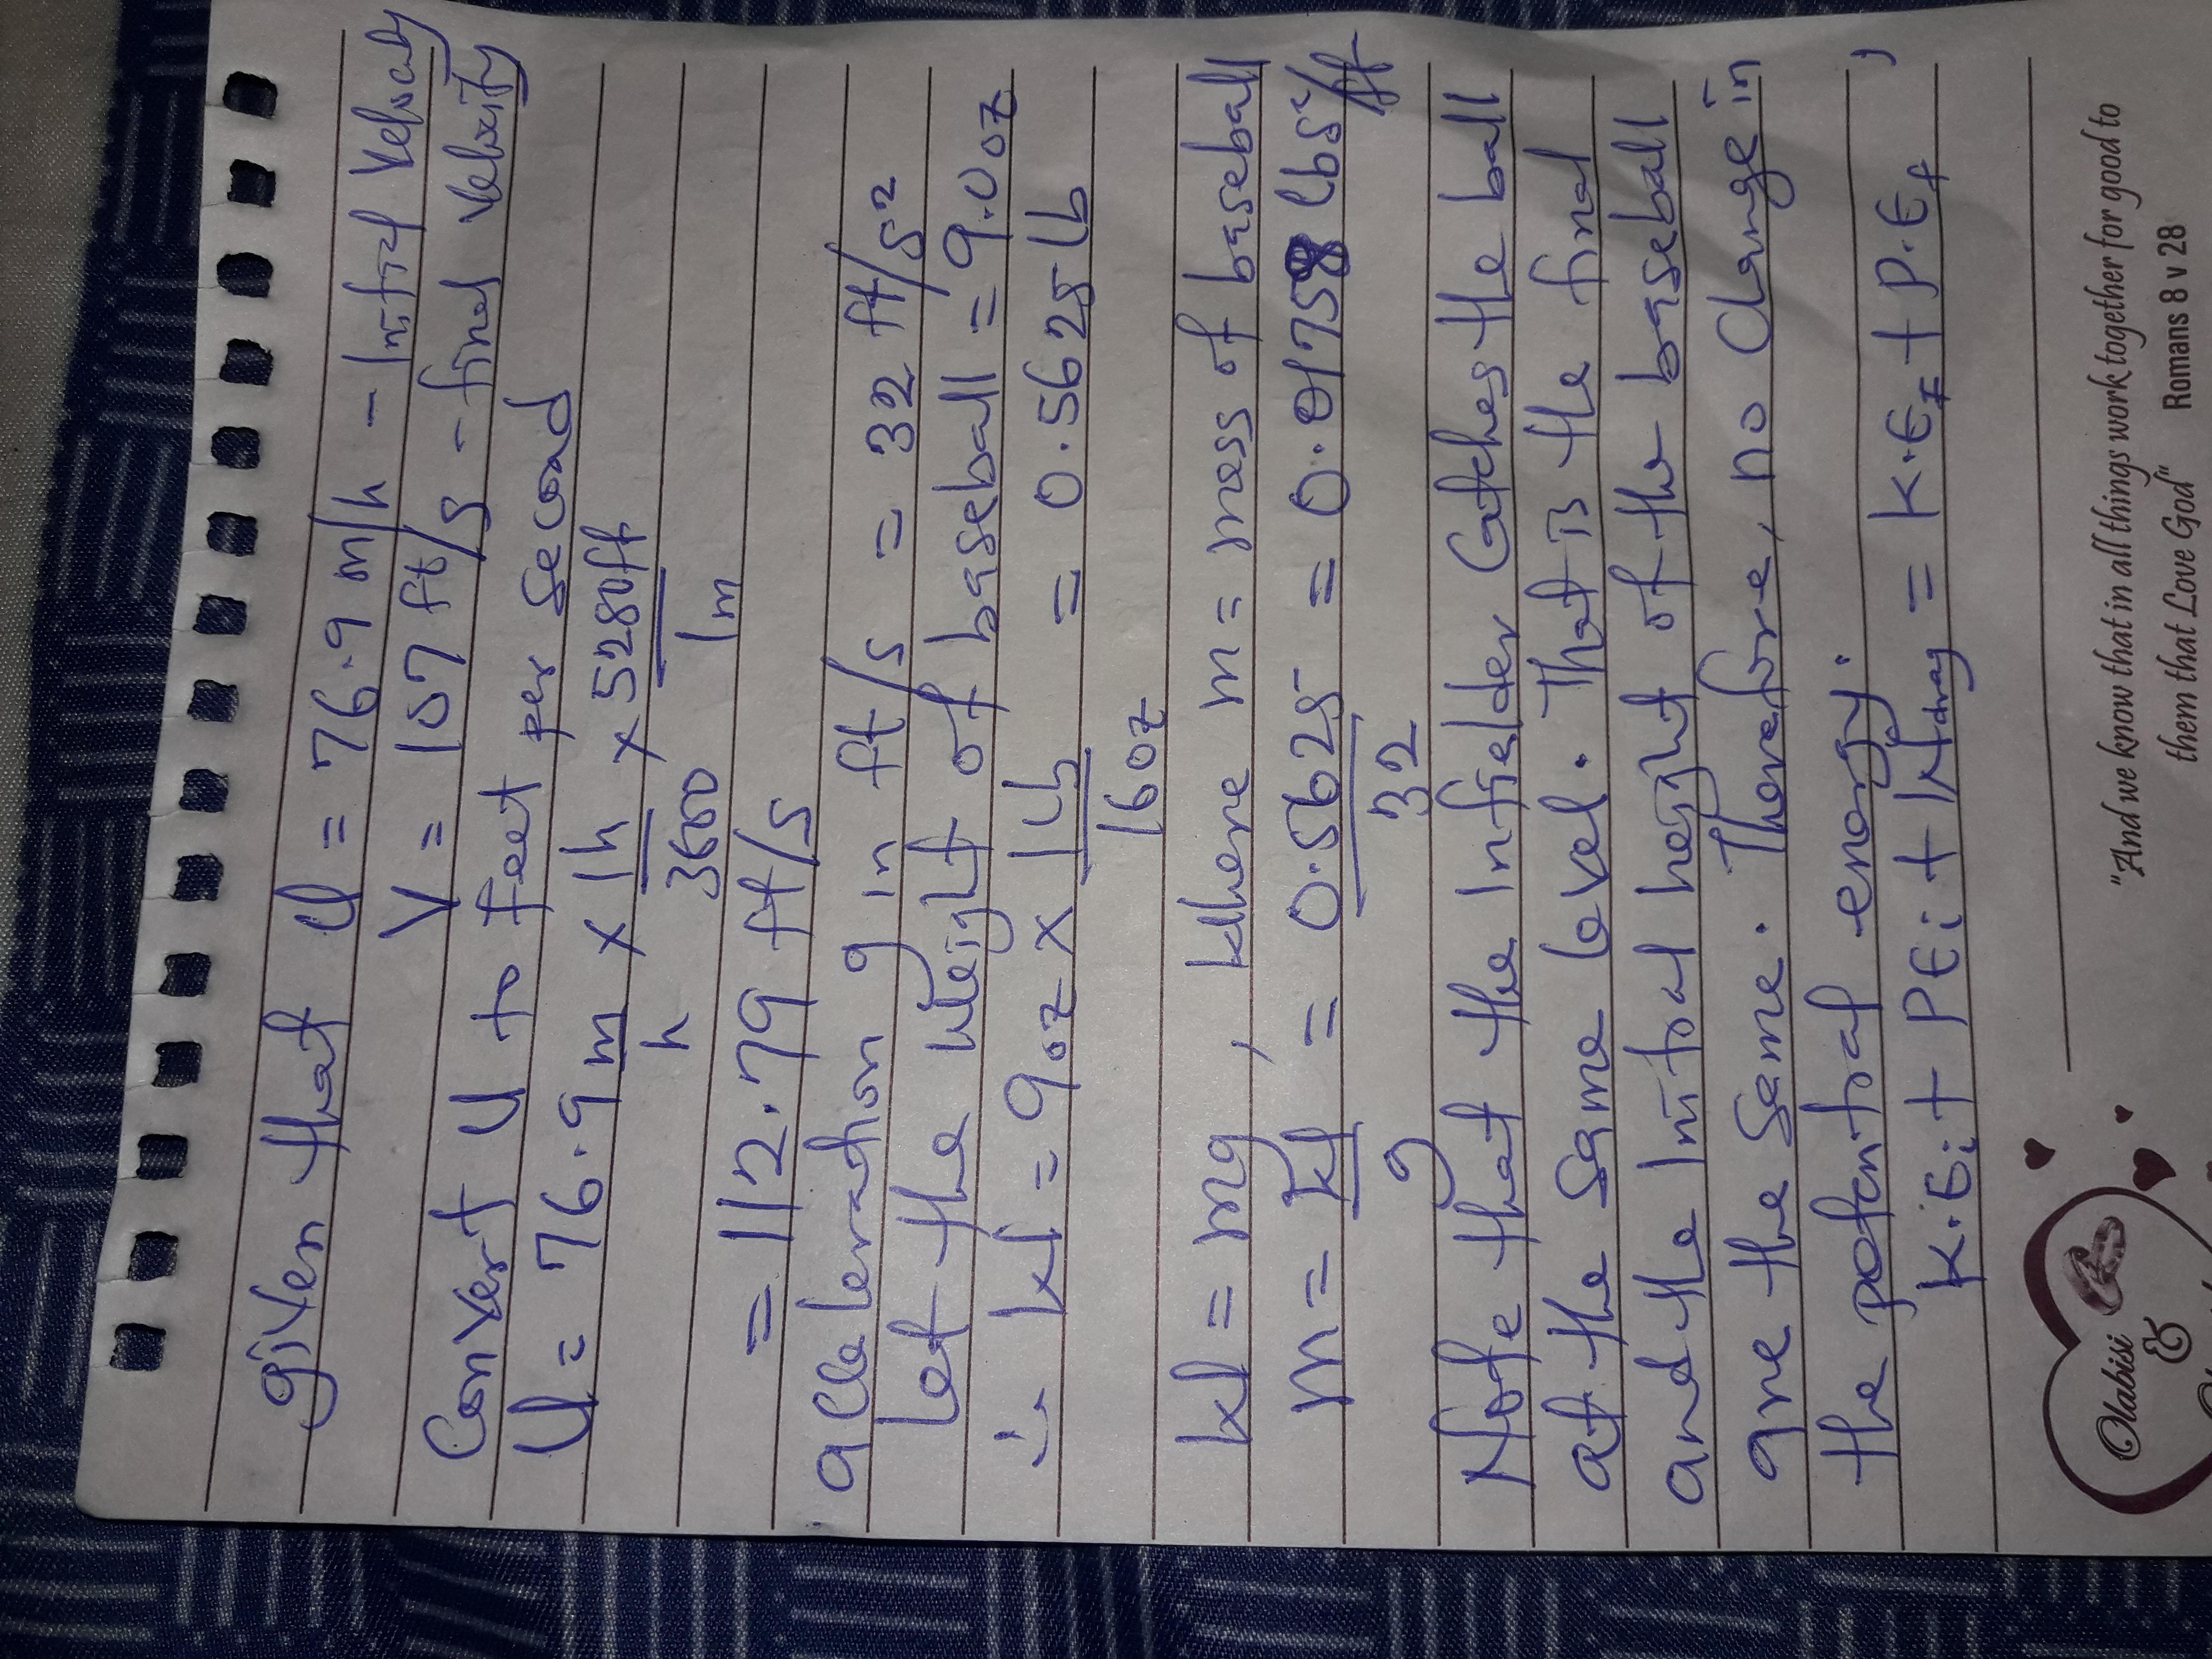 given that U = 76.9 m/h - Initial Velocity
V = 107 ft/s - final Velocity
Convert U to feet per second
U = 76.9 m/h × 1h/3600 × 5280ft/1m
= 112.79 ft/s
acceleration g in ft/s = 32 ft/s²
Let the weight of baseball = 9.0oz
∴ W = 9oz × 1lb/16oz = 0.5625 lb
W = mg, where m = mass of baseball
m = W/g = 0.5625/32 = 0.01758 lbs²/ft
Note that the Infielder Catches the ball
at the same level. That is the final
and the Initial height of the baseball
are the same. Therefore, no change in
the potential energy.
K.Ei + PEi + Wdrag = K.Ef + P.Ef,
"And we know that in all things work together for good to
them that Love God"
Romans 8 v 28
Olabisi
&